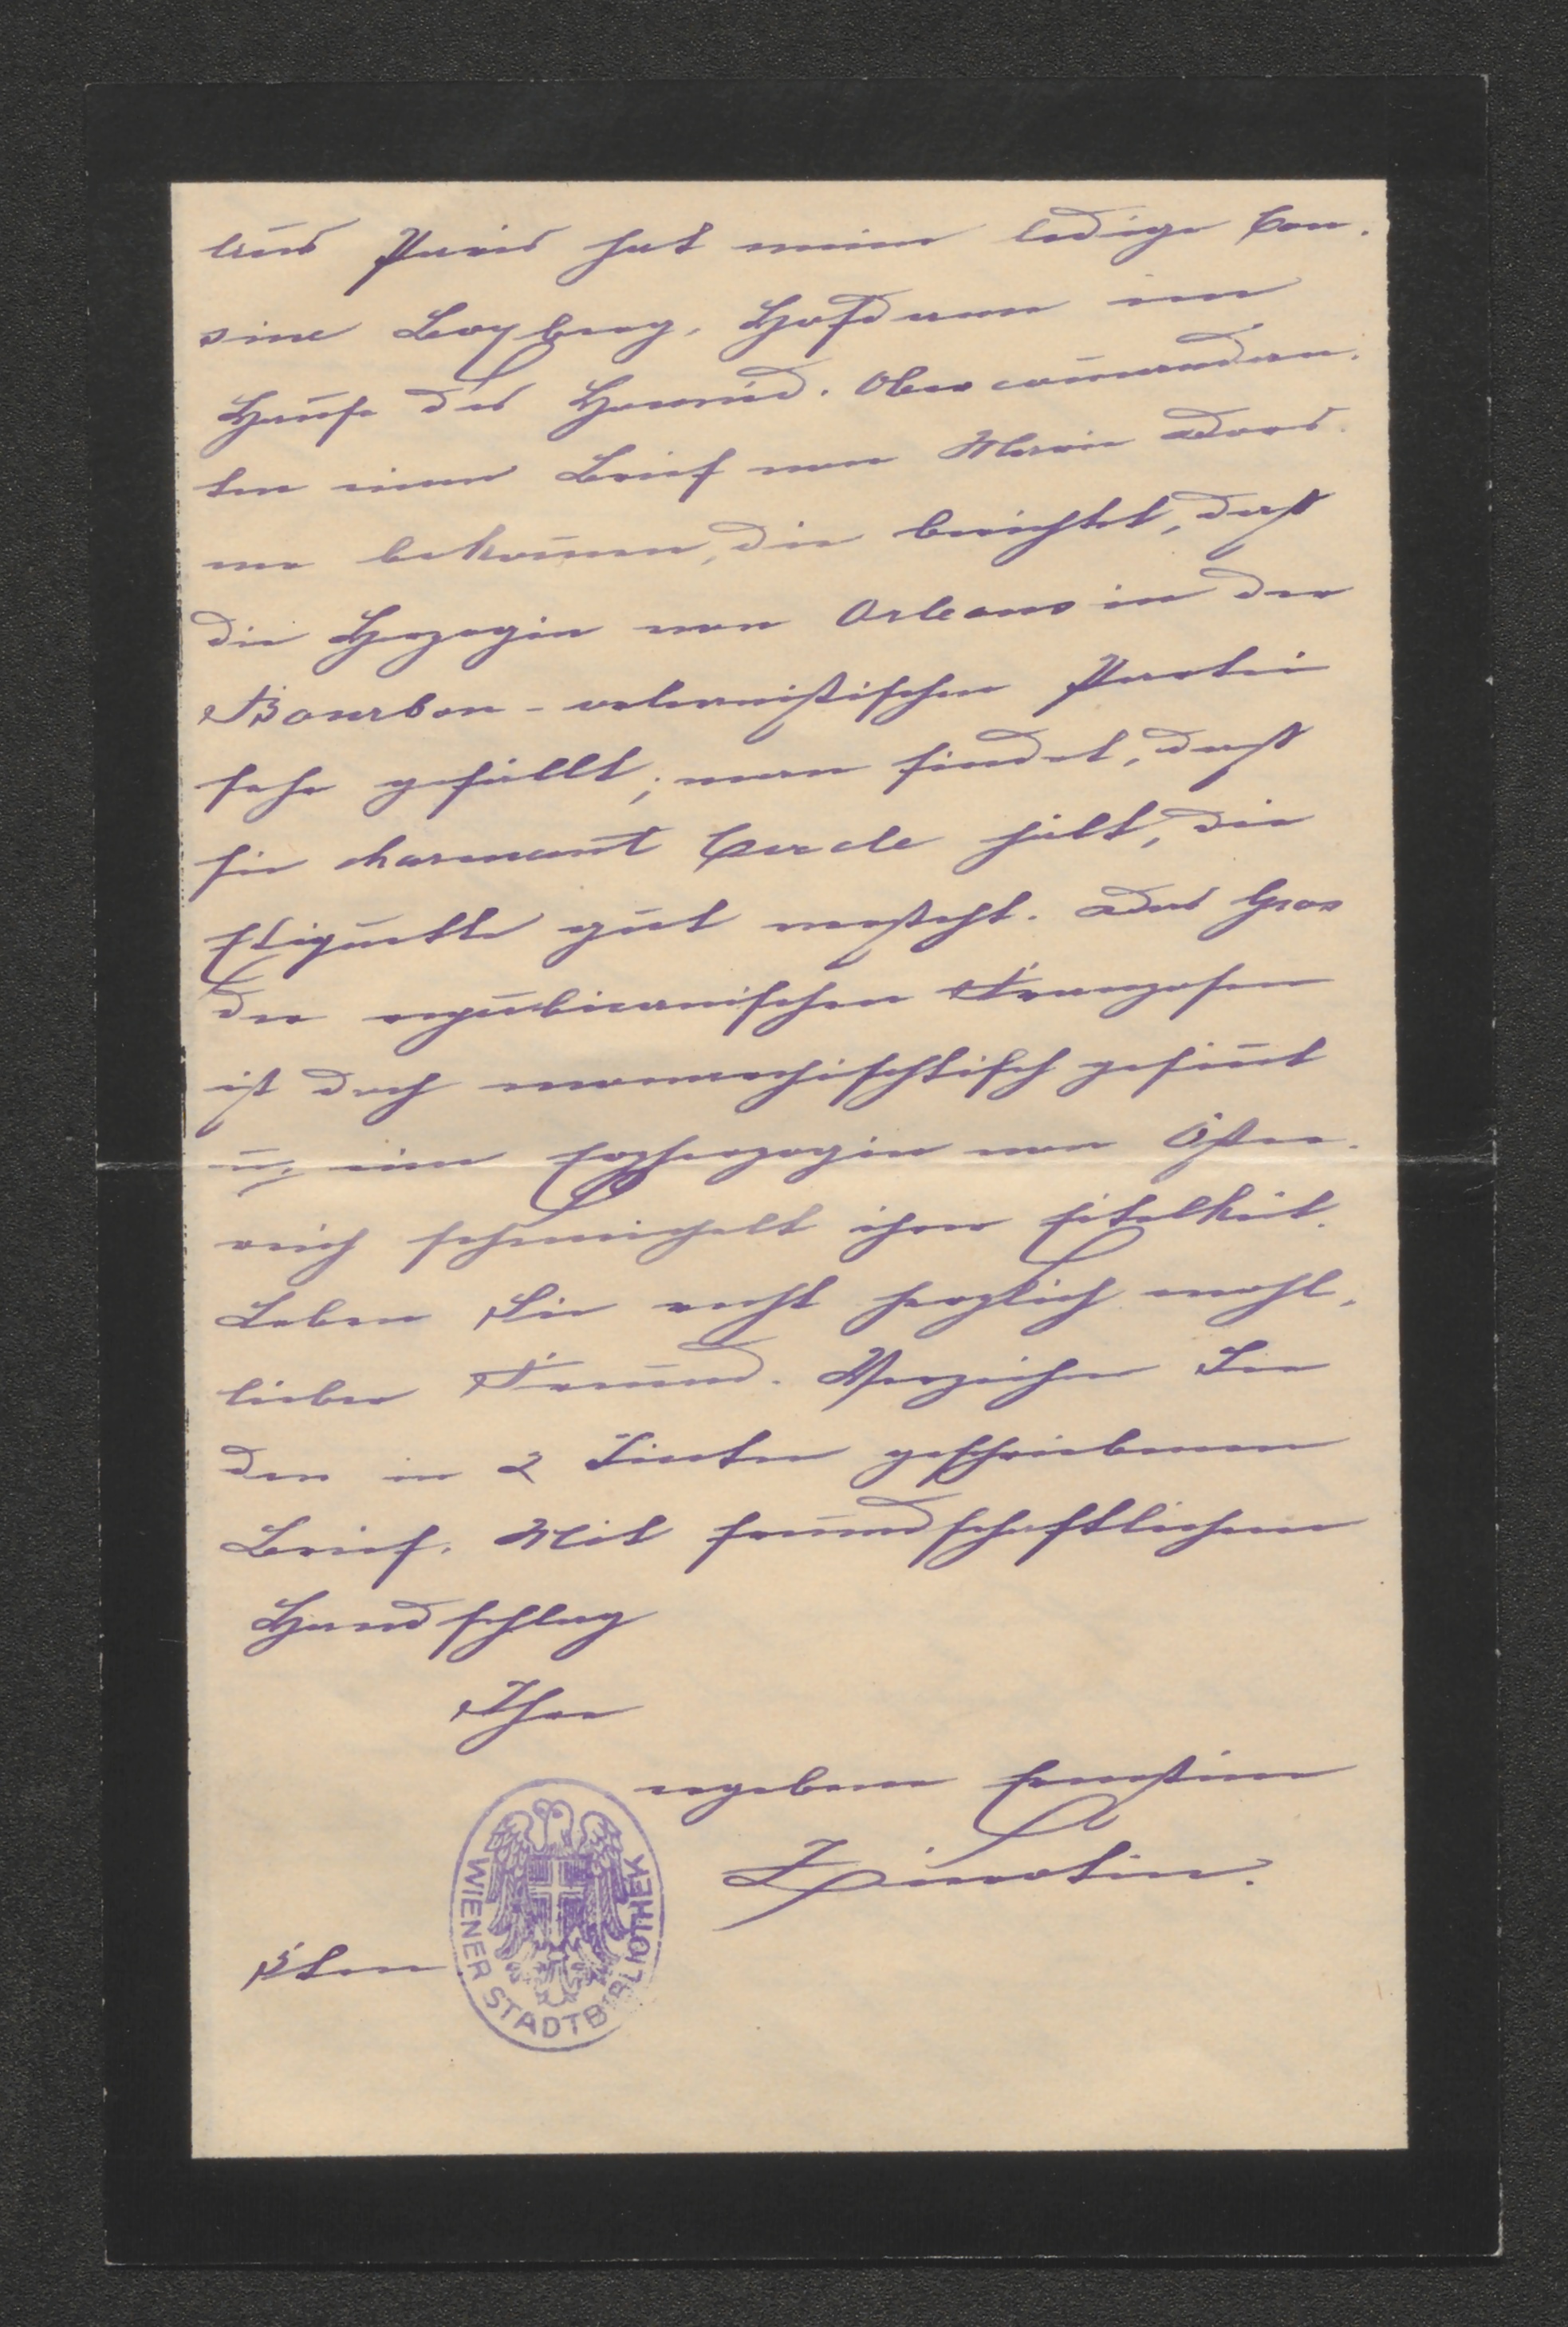 Aus Paris hat meine ledige Cou-
sine Boxberg, Hofdame im
Hause des Honvéd-Obercom̄andan-
ten einen Brief von Marie
bekom̄en, die berichtet, daß
die Herzogin von Orleans in der
Bourbon-orleanistischen Partei
sehr gefällt; man findet, daß
sie charmant Cercle hält, die
Etiquette gut versteht. Das Gros
der republicanischen Franzosen
ist doch monarchischtisch gesin̄t
u. eine Erzherzogin von Öster-
reich schmeichelt ihrer Eitelkeit.
Leben Sie recht herzlich wohl,
lieber Freund. Verzeihen Sie
den in 2 Tinten geschriebenen
Brief. Mit freundschaftlichem
Handschlag
Ihre
ergebene Ernestine
5ten
WIENER STADTBIBLIOTHEK